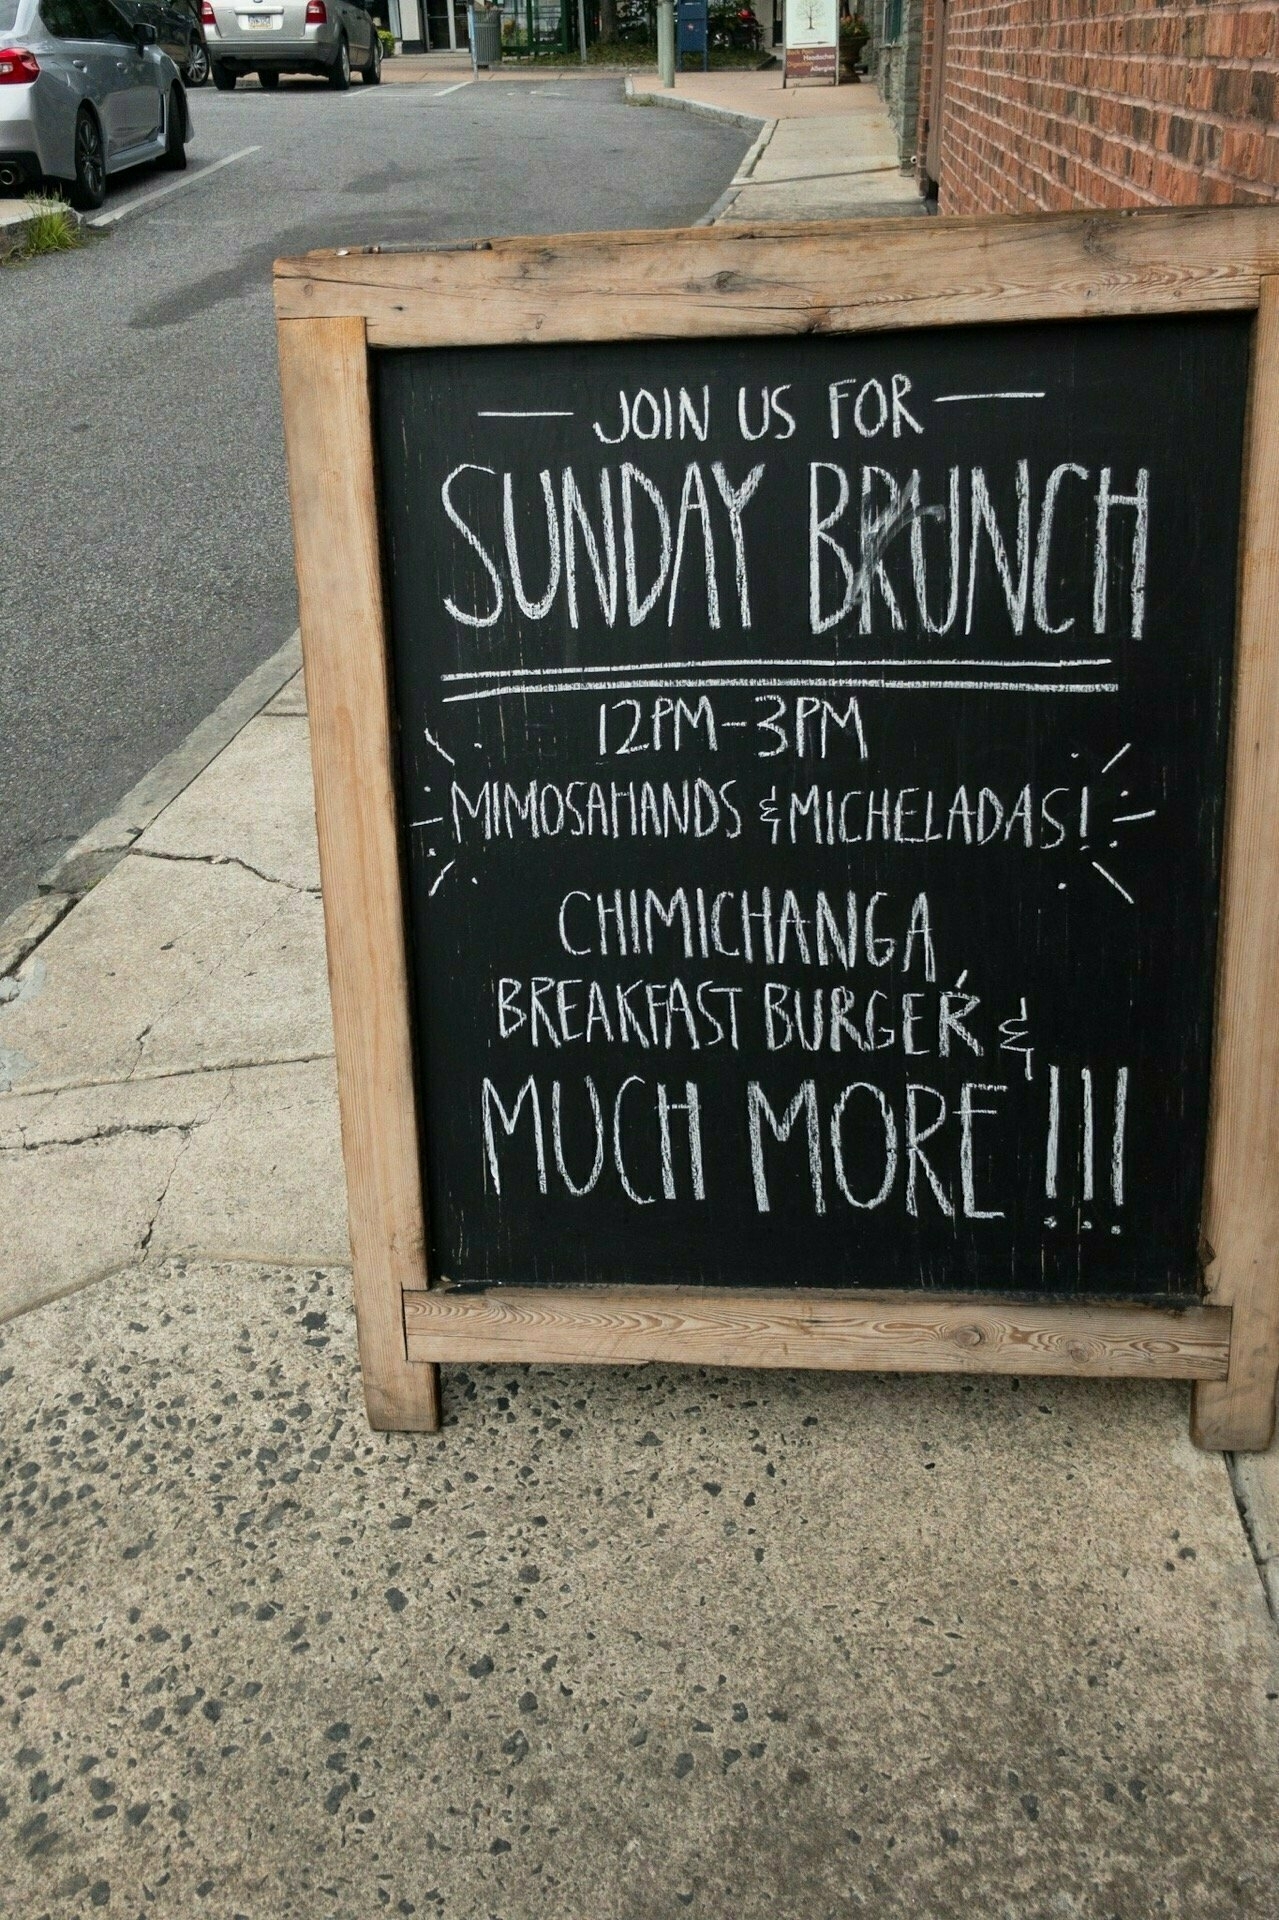 JOIN US FOR
SUNDAY BRUNCH
12PM-3PM
MIMOSAHANDS & MICHELADAS!
CHIMICHANGA,
BREAKFAST BURGER &
MUCH MORE!!!
Headaches
Allergies